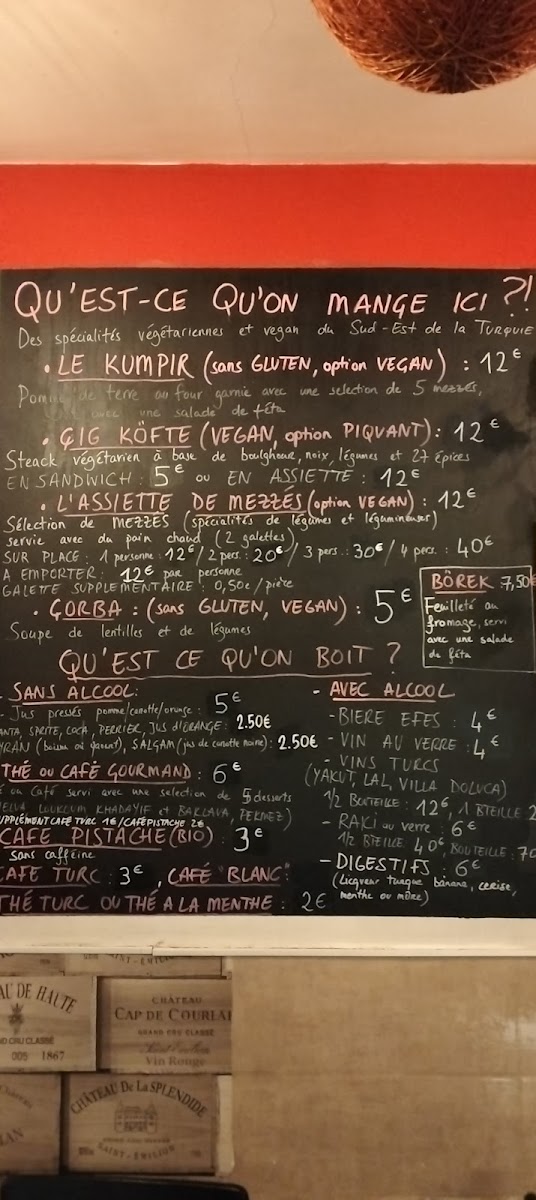 QU'EST-CE QU'ON MANGE ICI ?!
Des spécialités végétariennes et vegan du Sud-Est de la TURQUIE
• LE KUMPIR (sans GLUTEN, option VEGAN) : 12€
Pomme de terre au four garnie avec une selection de 5 mezzés,
avec une salade de féta
• ÇIG KÖFTE (VEGAN, option PIQUANT) : 12€
Steack végétarien à base de boulgheur, noix, légumes et 27 épices
EN SANDWICH : 5€ ou EN ASSIETTE : 12€
• L'ASSIETTE DE MEZZÉS (option VEGAN) : 12€
Sélection de MEZZÉS (spécialités de légumes et légumineuses)
servie avec du pain chaud (2 galettes)
SUR PLACE : 1 personne : 12€ / 2 pers. : 20€ / 3 pers. : 30€ / 4 pers. : 40€
A EMPORTER : 12€ par personne
GALETTE SUPPLÉMENTAIRE : 0,50€ / pièce
• ÇORBA : (sans GLUTEN, VEGAN) : 5€
Soupe de lentilles et de légumes
BÖREK 7,50€
Feuilleté au
fromage, servi
avec une salade
de féta
QU'EST CE QU'ON BOIT ?
- SANS ALCOOL :
- Jus pressés pomme/carotte/orange : 5€
ANTA, SPRITE, COCA, PERRIER, JUS D'ORANGE : 2.50€
YRAN (boisson au yaourt), SALGAM (jus de carotte noire) : 2.50€
THÉ OU CAFÉ GOURMAND : 6€
ou Café servi avec une selection de 5 desserts
HELVA LOUKOUM KHADAYIF et BAKLAVA, PEKMEZ)
SUPPLÉMENT CAFÉ TURC 1€ / CAFÉ PISTACHE 2€
CAFE PISTACHE (BIO) : 3€
Sans caffeine
CAFE TURC : 3€, CAFÉ "BLANC" :
THÉ TURC OU THÉ A LA MENTHE : 2€
- AVEC ALCOOL
- BIERE EFES : 4€
- VIN AU VERRE : 4€
- VINS TURCS
(YAKUT, LAL, VILLA DOLUCA)
1/2 BOUTEILLE : 12€, 1 BTEILLE 2
- RAKI au verre : 6€
1/2 BTEILLE 40€, BOUTEILLE : 70
- DIGESTIFS : 6€
(Licqueur turque banane, cerise,
menthe ou mûre)
SAINT-EMILION
AU DE HAUTE
ND CRU CLASSÉ
005 1867
CHÂTEAU
CAP DE COURLAI
GRAND CRU CLASSÉ
Saint-Emilion
Vin Rouge
CHÂTEAU De La SPLENDIDE
SAINT-ÉMILION